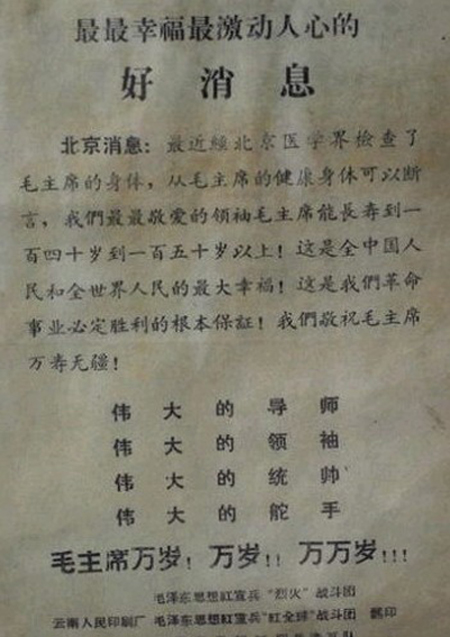 最最幸福最激动人心的
好消息
北京消息：最近經北京医学界檢查了
毛主席的身体，从毛主席的健康身体可以断
言，我們最最敬爱的領袖毛主席能長寿到一
百四十岁到一百五十岁以上！这是全中国人
民和全世界人民的最大幸福！这是我們革命
事业必定胜利的根本保証！我們敬祝毛主席
万寿无疆！
伟大的导师
伟大的領袖
伟大的统帅
伟大的舵手
毛主席万岁！万岁！！万万岁！！！
毛泽东思想紅宣兵“烈火”战斗团
云南人民印刷厂 毛泽东思想紅宣兵“紅全球”战斗团 翻印